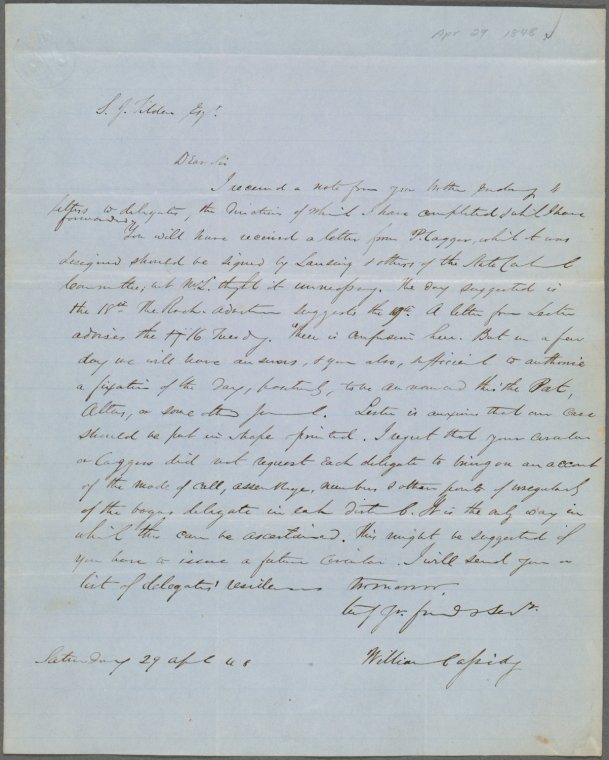 Apr 29 1848
S. J. Tilden Esqr.
Dear Sir
I received a note from your brother enclosing
letters to delegates, the direction of which I have completed & which I have
forwarded
You will have received a letter from P. Cagger, which it was
designed should be signed by Lansing & others of the State Central
Committee, but Mr L. thought it unnecessary. The day suggested is
the 18th. The Roch. Advertiser suggests the A letter from Lester
advises the 16 Tuesday. There is confusion here. But in a few
days we will have answers, & you also, sufficient to authorize
a fixation of the day, positively, to be announced thro' the Post,
Atlas, or some other journal. Lester is anxious that our case
should be put in shape & printed. I regret that your circular
or Caggers did not request each delegate to bring on an account
of the mode of call, assemblage, numbers & other points of irregularity
of the bogus delegate in each District. It is the only way in
which this can be ascertained. This might be suggested if
you have to issue a future circular. I will send you a
list of delegates' residences tomorrow.
Truly Yr. friend & Servt.
William Cassidy
Saturday 29 April 48